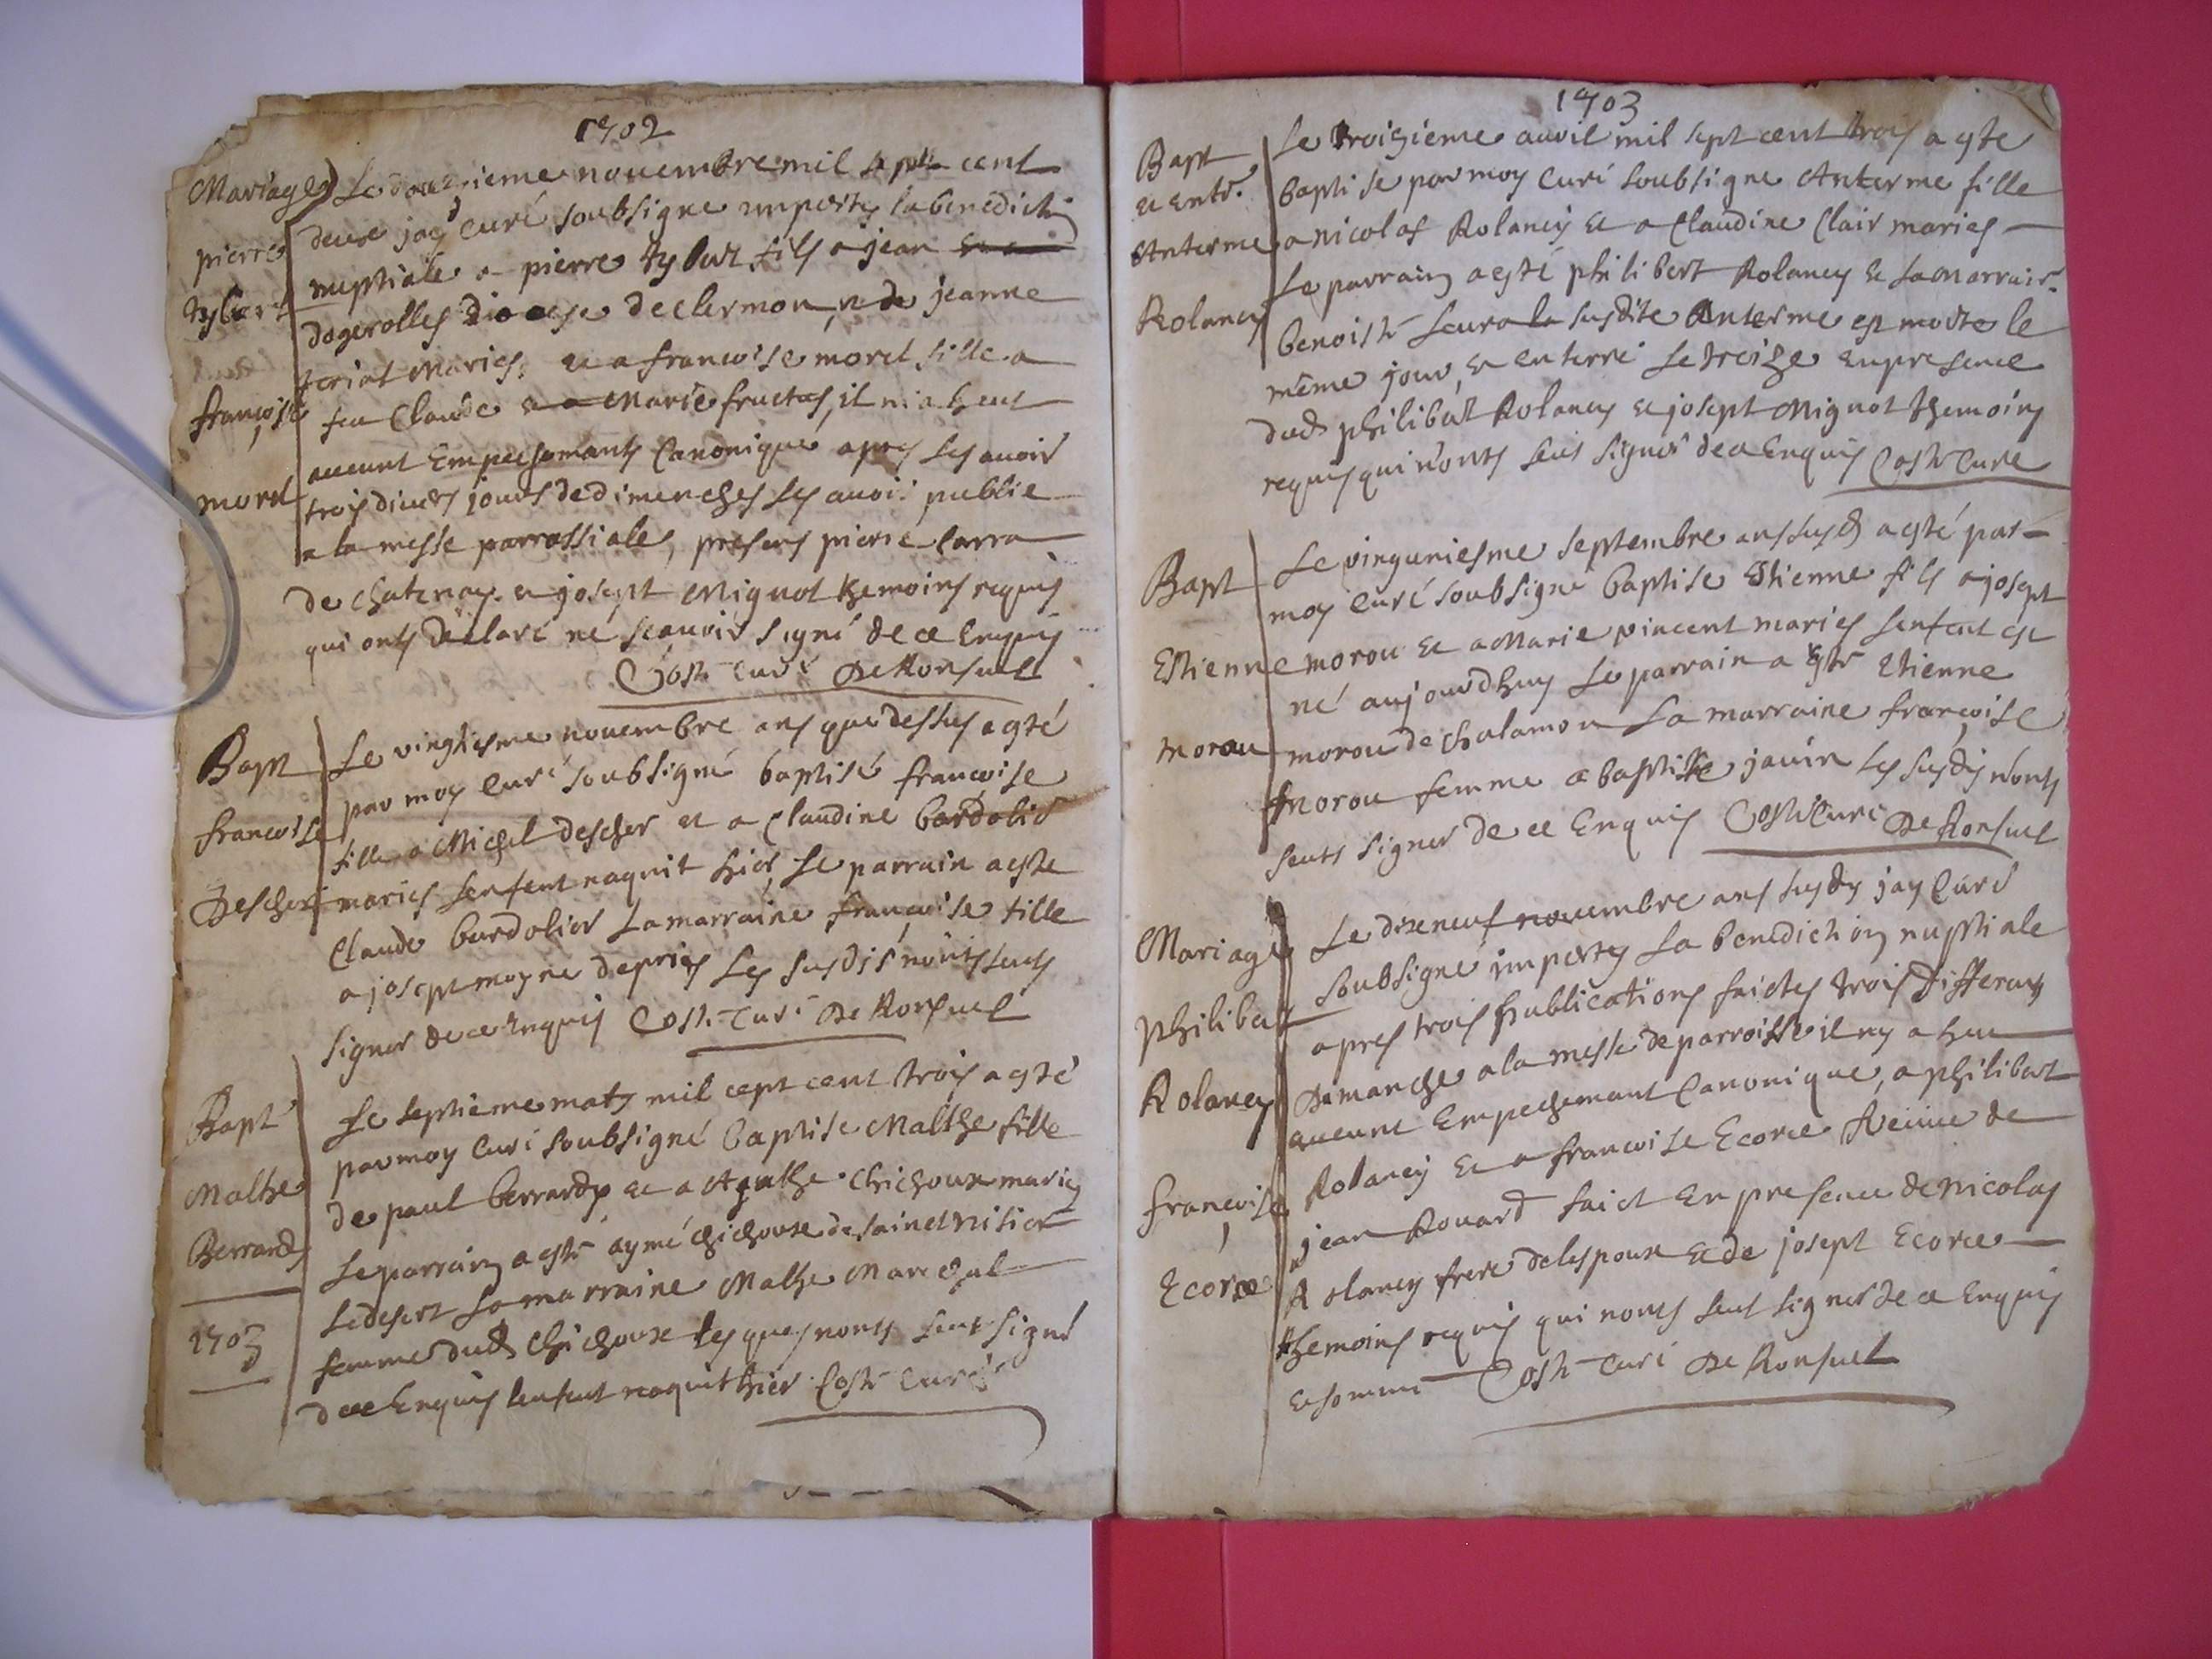 1702
Mariage Le douzieme novembre mil sept cent
deux jay curé soubsigne imparty la benedicti
pierre nuptiale a pierre tybert fils a jean
tybert dogerolles diocese de clermon, n de jeanne
teriat maries, et a francoise morel fille a
françoise feu Claude marie fructus, il ni a heut
aucunt Empechemants Canonique apres les avoir
morel trois divers jours de dimenches les avoir publie
a la messe parrossiale, presens pierre Carra
de chatenay et josept Mignot themoins requis
qui onts déclaré né scauoir signé de ce Enquis
Coste curé De Ronsuel
Bapt Le vingtiesme novembre ans que dessus a esté
par moy Curé soubsigné baptisé françoise
francoise fille a Michel descher et a Claudine bardolid
Descher maries lenfent naquit hier, Le parrain a este
Claude bardolier La marraine françoise fille
a josept moyne depries Les susdis nonts seuts
signer de ce Enquis Coste Curé De Ronsuel
Bapt Le septieme mars mil cept cent trois a esté
par moy Curé soubsigné baptise Malthe fille
Malthe de paul berrard et a Agathe Chichoux maries
Berrard Le parrain a esté aymé chichoux de sainct nisier
Le desert La marraine Malthe Marechal
1703 femme dud Chichoux les ques nonts seut signé
de ce Enquis lenfent naquit hier Coste Curé
1703
Bapt Le troisieme avvil mil sept cent trois a este
et entr. baptise par moy Curé soubsigne Anterme fille
Anterme a nicolas Rolancy et a Claudine Clair maries
Le parrain a esté philibert Rolancy et La marrair.
Rolancy benoiste seura la susdite Anterme est morte le
même jour, et enterré Le treize en presence
dud philibert Rolancy et josept Mignot themoins
requis qui n'onts seut signer de ce Enquis Coste Cure
Le vinguniesme septembre ans susd a esté par
Bapt moy Curé soubsigné baptise Estienne fils a josept
Estienne morou et a Marie vincent maries lenfent est
né aujourdhuy Le parrain a esté Etienne
morou morou de chalamon La marraine françoise
morou femme a baptiste janin Les susdis nonts
seuts signer de ce Enquis Coste Curé De Ronsuel
Mariage Le dixneuf novembre ans susdy jay Curé
soubsigné imparty La benediction nuptiale
philibert apres trois publications faictes trois differents
Dimanche a la messe de parroisse il ny a heu
Rolancy aucunt Empechemant Canonique, a philibert
Rolancy et a francoise Ecorce veuve de
françoise jean Rouard faict En presence de nicolas
Ecorce Rolancy frere de lespoux et de josept Ecorce
themoins requis qui nonts seut signer de ce Enquis
et sommé Coste Curé De Ronsuel